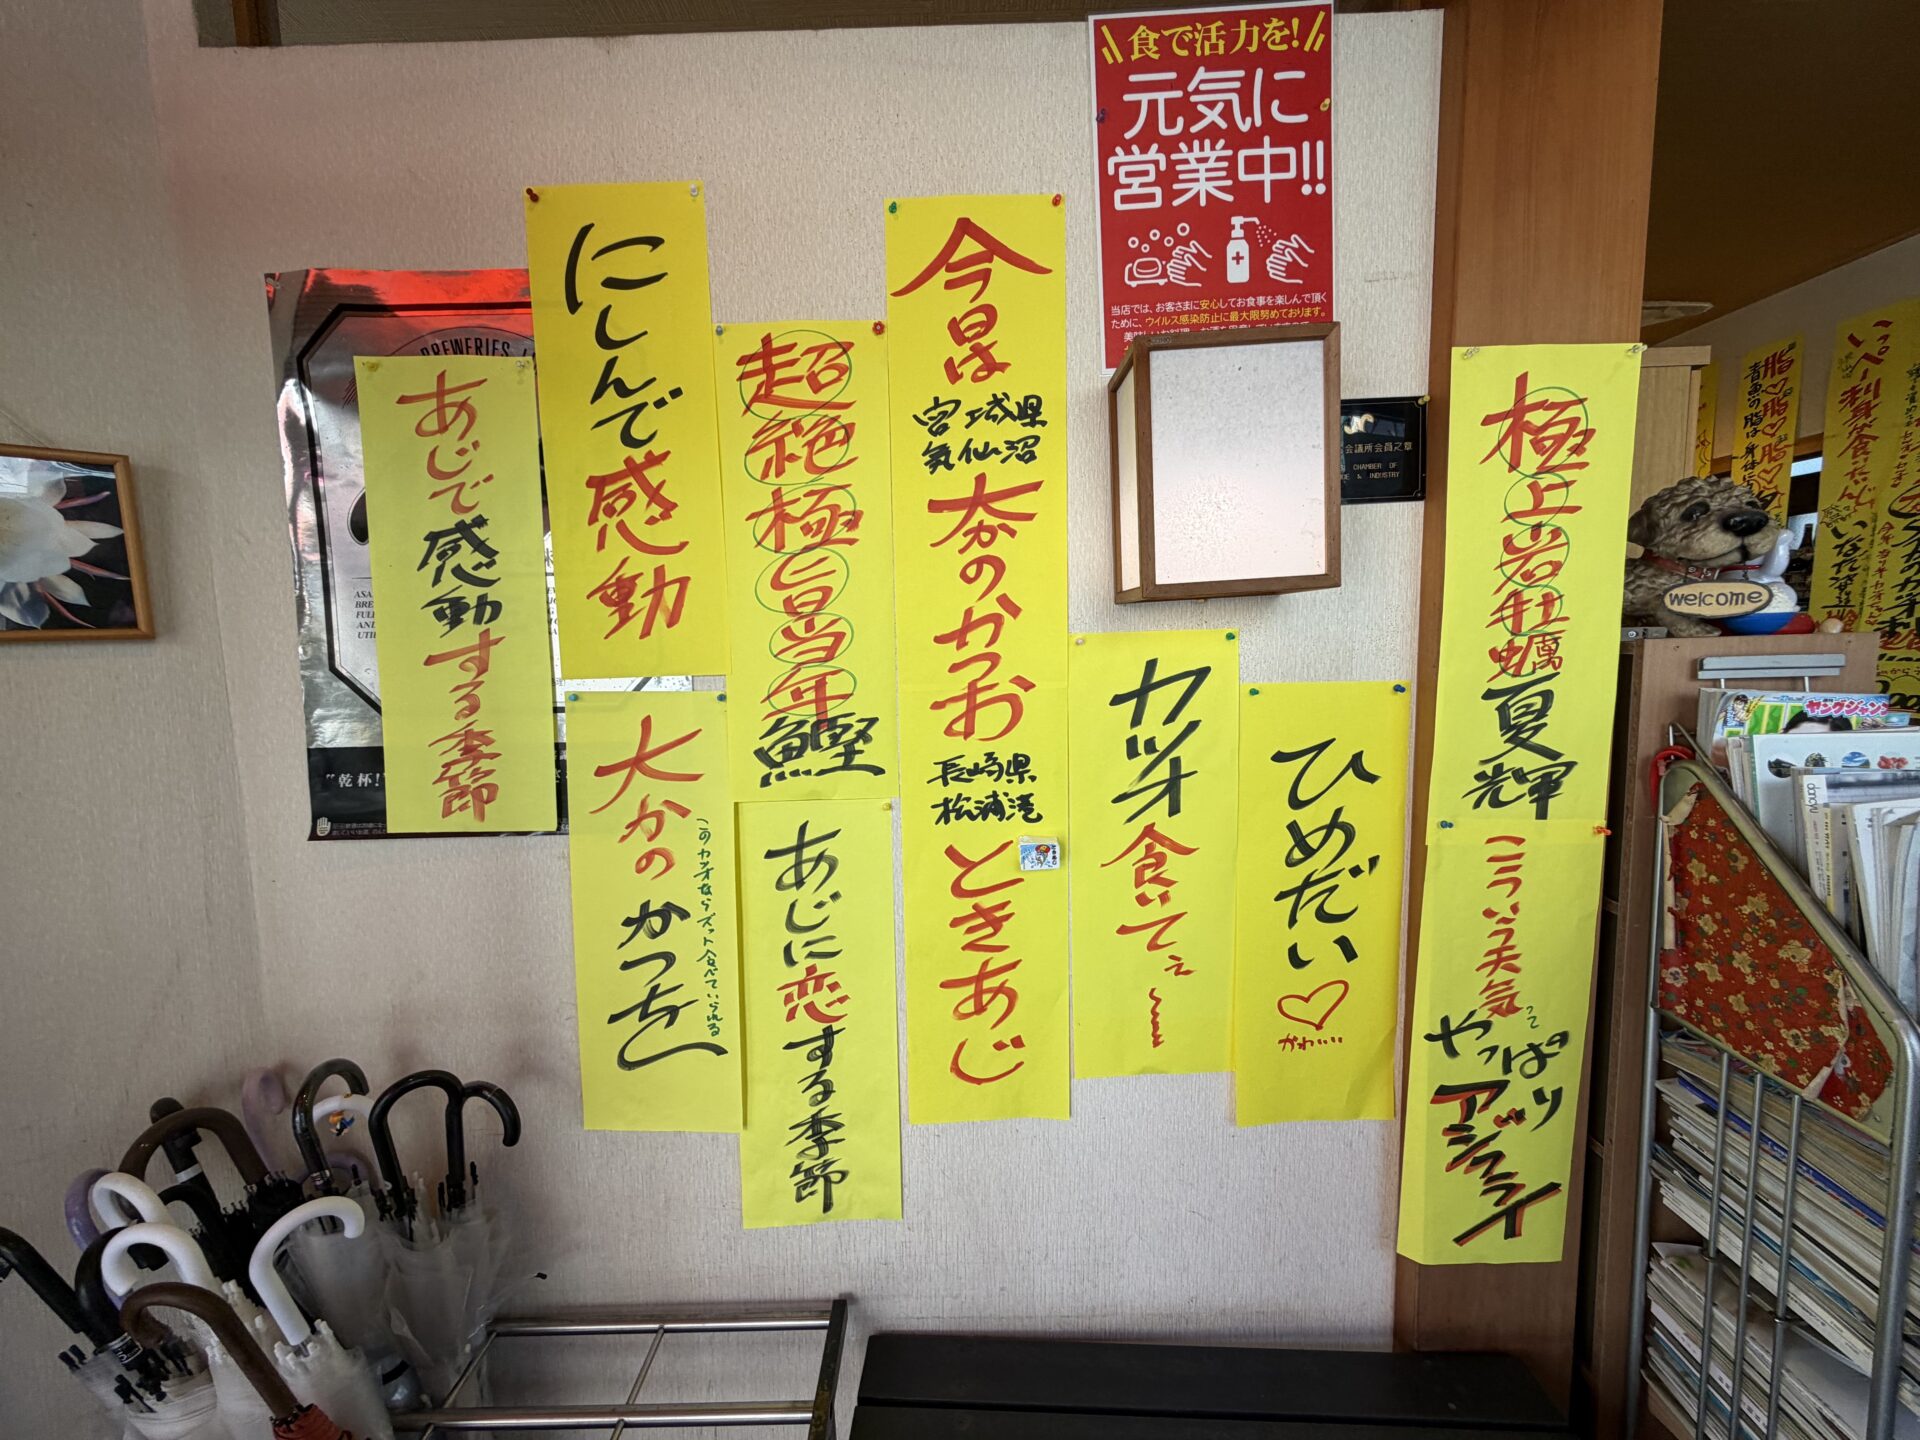 食で活力を!
元気に
営業中!!
当店では、お客さまに安心してお食事を楽しんで頂く
ために、ウイルス感染防止に最大限努めております。
BREWERIES
あじで感動する季節
"乾杯!"
にしんで感動
大かの
かつを
このカツオならズット食べていられる
超絶極旨当年鰹
あじに恋する季節
今日は
宮城県
気仙沼
大かのかつお
長崎県
松浦港
ときあじ
カツオ
食いてぇ〜
ひめだい♡
かわいい
会議所会員之章
CHAMBER OF
& INDUSTRY
極上岩牡蠣
夏輝
こういう天気って
やっぱり
アジフライ
welcome
ヤングジャン
脂♡脂♡脂
青魚の脂は